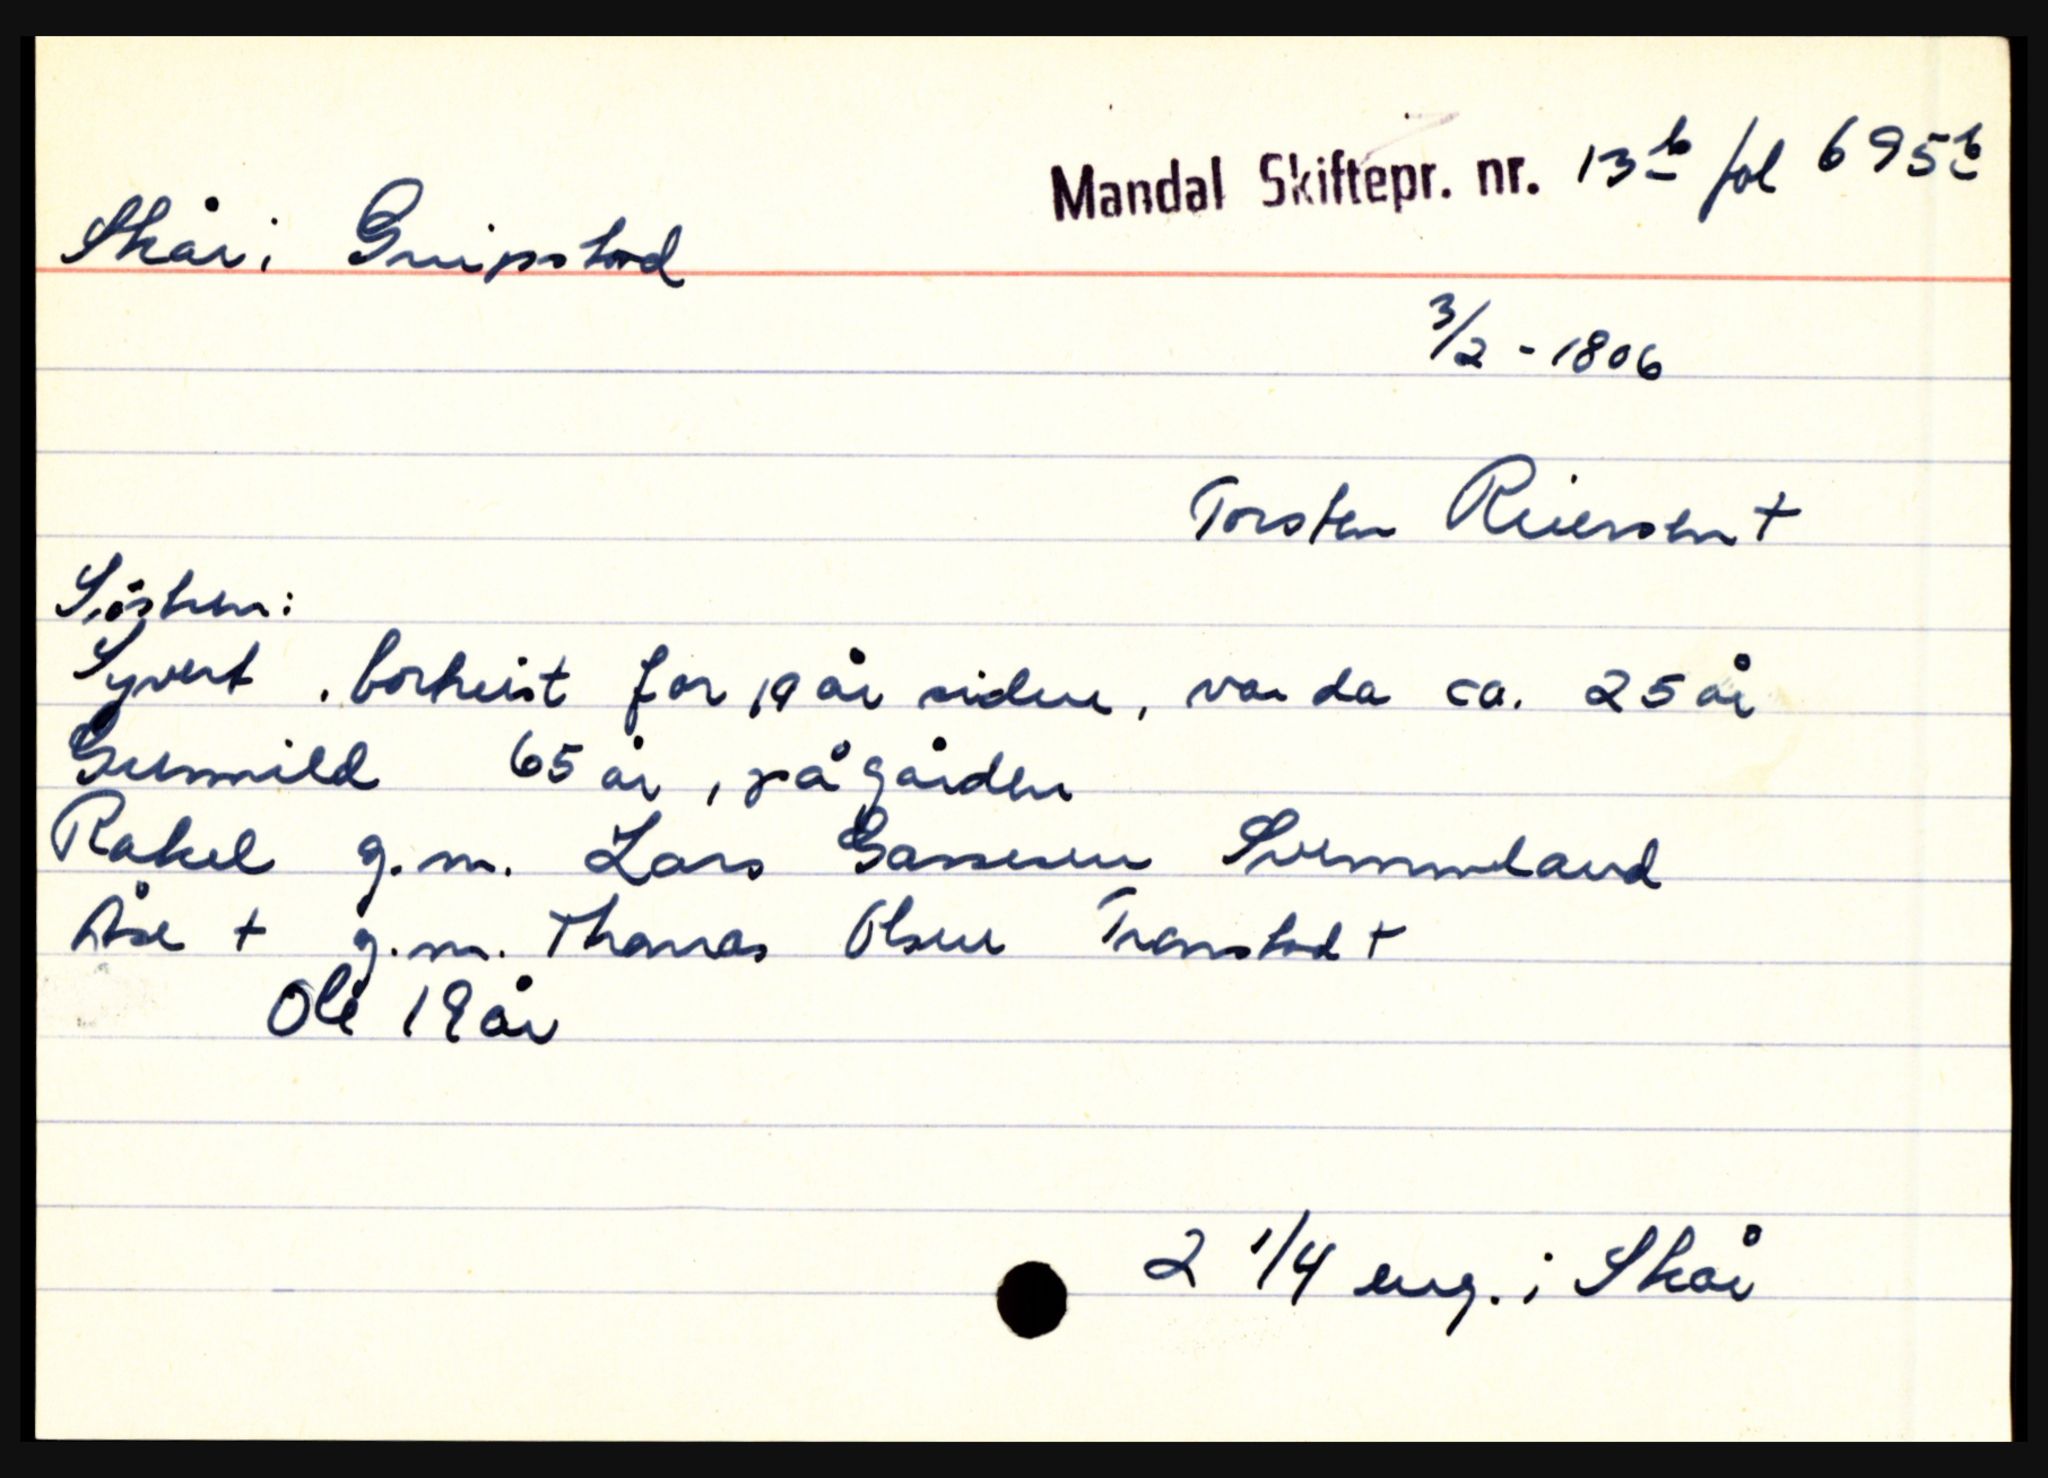 Mandal Skiftepr. nr. 13b fol 695b
Skår i Gripstad
3/2 - 1806
Torsten Reiersen +
Søsken:
Syvert, bortreist for 19 år siden, var da ca. 25 år
Gunnild 65 år, på gården
Rakel g.m. Lars Gassesen
Åse + g.m. Thomas Olsen Transtad +
Ole 19 år
2 1/4 eng. i Skår